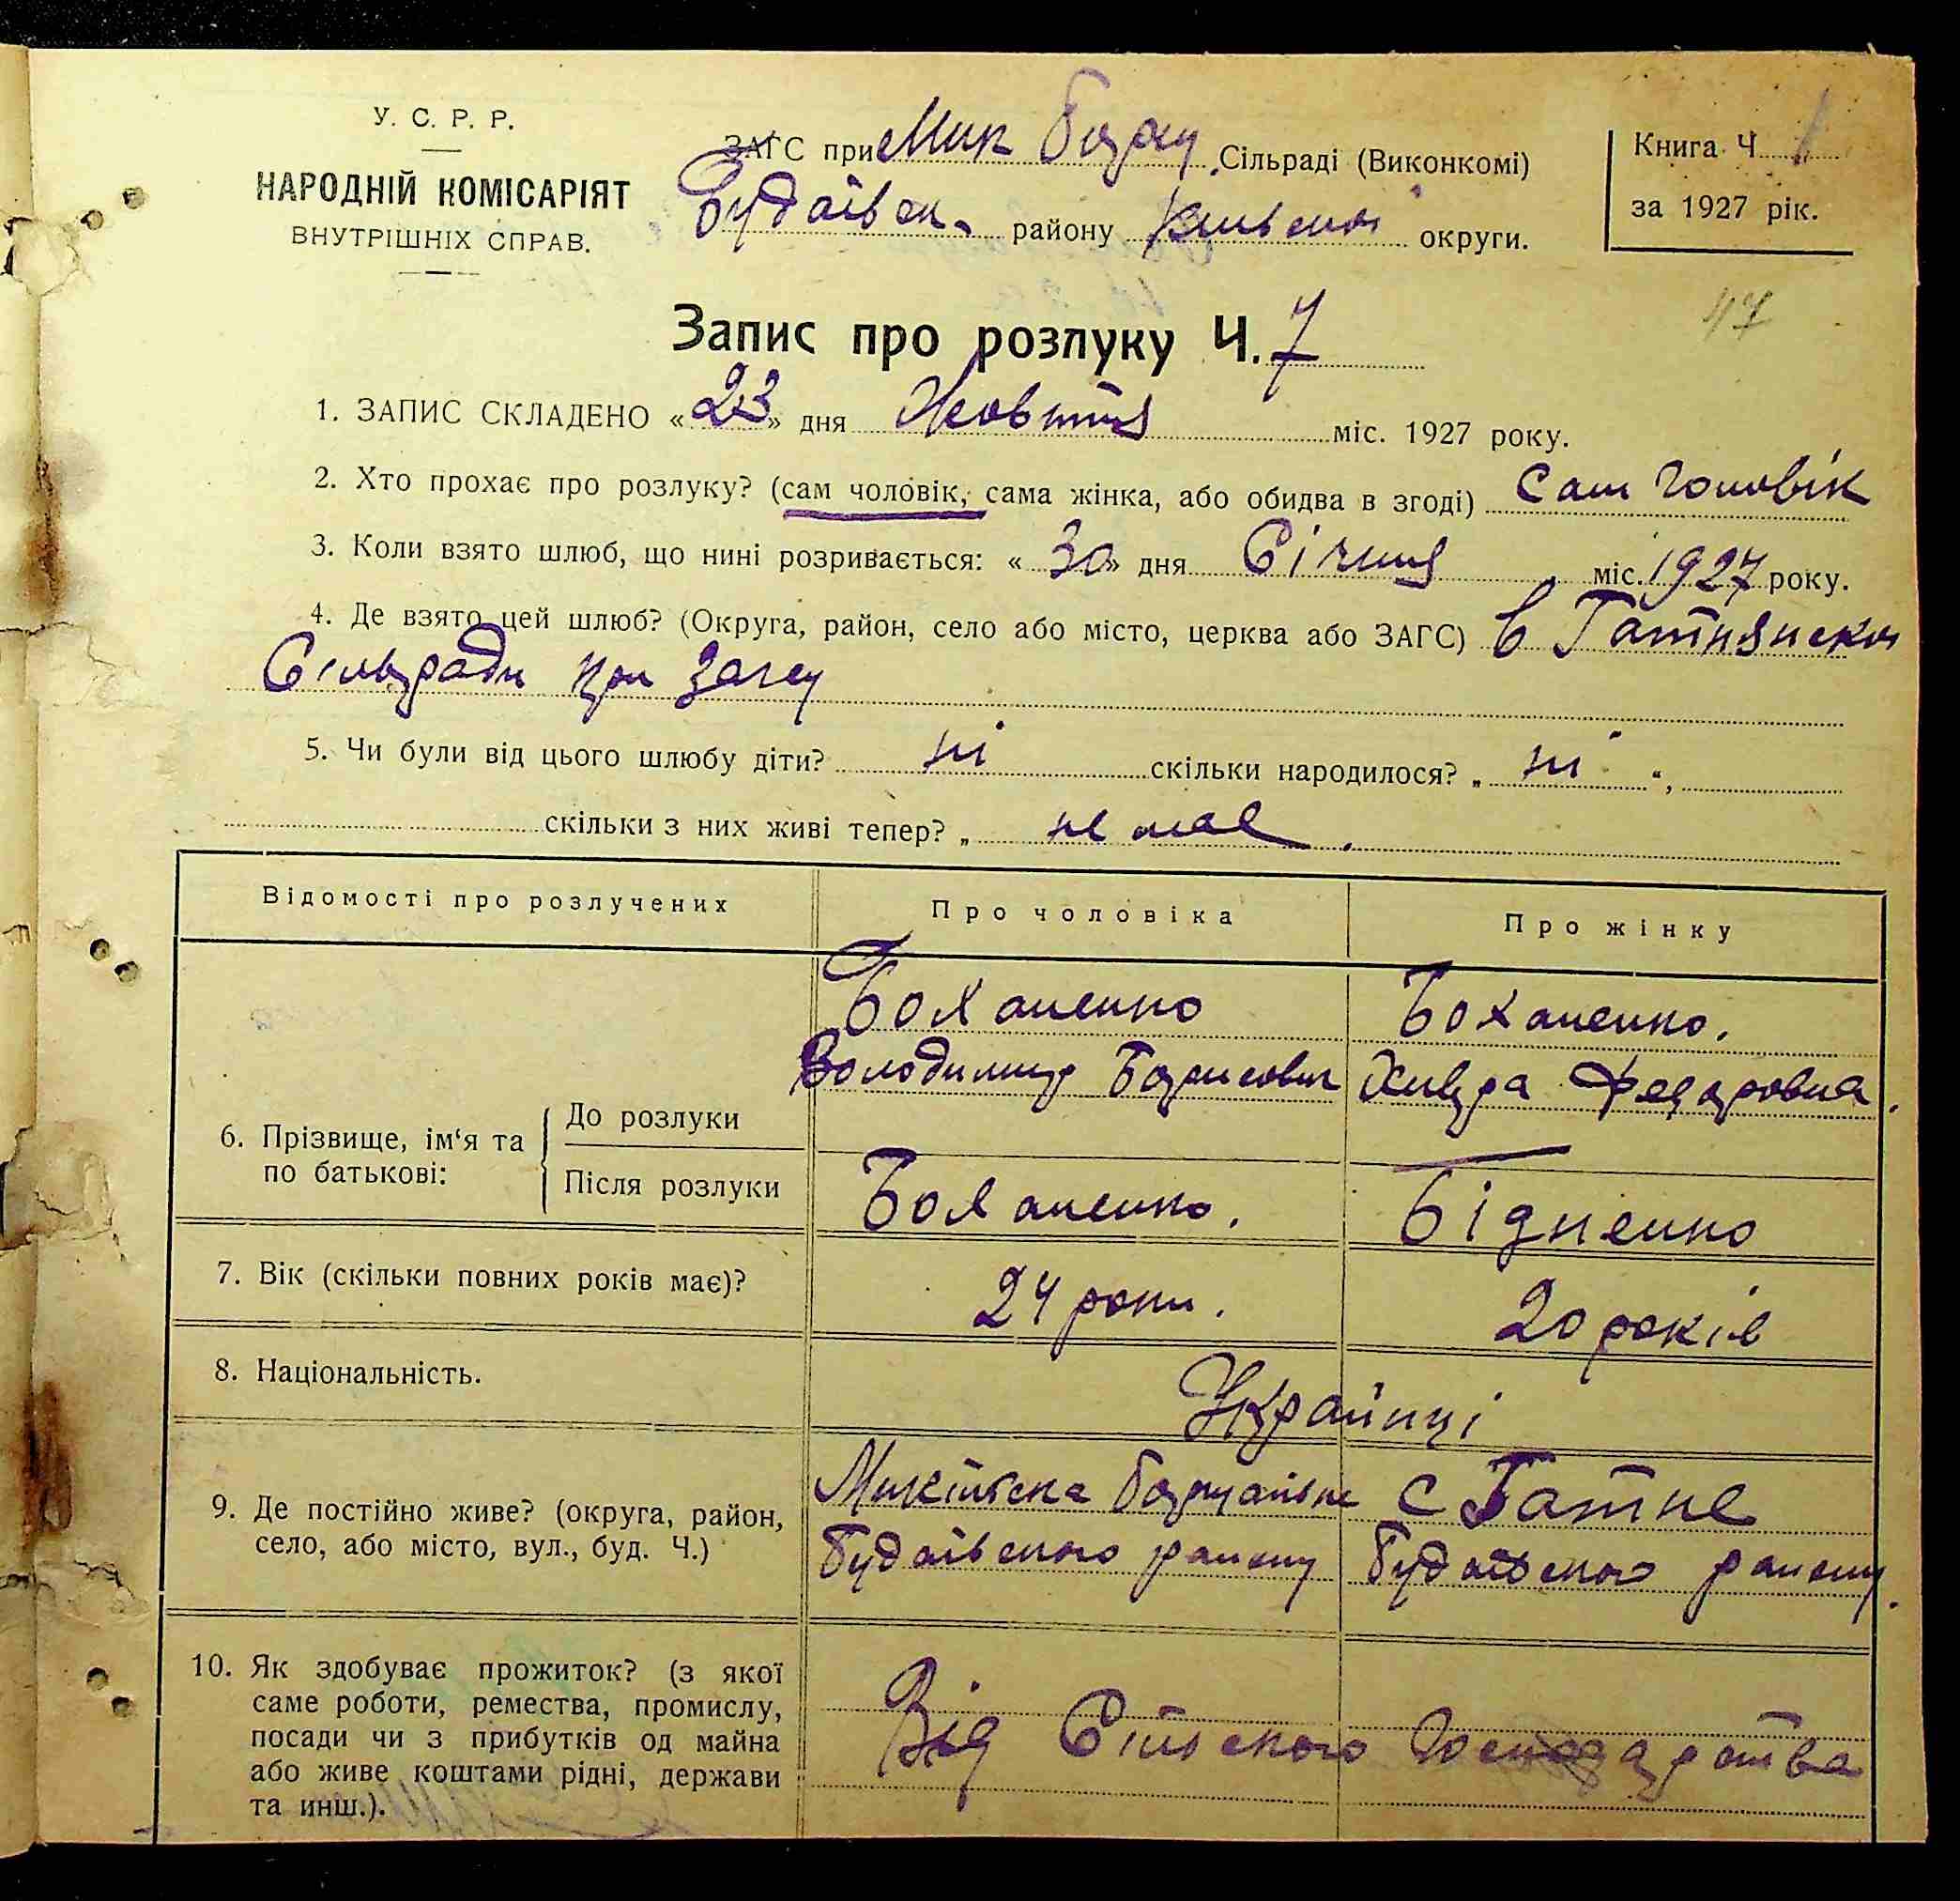 У. С. Р. Р.
НАРОДНІЙ КОМІСАРІЯТ
ВНУТРІШНІХ СПРАВ.
ЗАГС при Мик Борщ. Сільраді (Виконкомі)
Будаївск. району Київської округи.
Книга Ч. 1
за 1927 рік.
47
Запис про розлуку Ч. 7
1. ЗАПИС СКЛАДЕНО «23» дня Жовтня міс. 1927 року.
2. Хто прохає про розлуку? (сам чоловік, сама жінка, або обидва в згоді) Сам чоловік
3. Коли взято шлюб, що нині розривається: «30» дня Січня міс. 1927 року.
4. Де взято цей шлюб? (Округа, район, село або місто, церква або ЗАГС) в Гатнянскій
Сільради при Загсу
5. Чи були від цього шлюбу діти? ні скільки народилося? „ ні “,
скільки з них живі тепер? „ не має .
Відомості про розлучених
Про чоловіка
Про жінку
6. Прізвище, ім‘я та по батькові:
До розлуки
Боханенко
Володимир Борисович
Боханенко.
Хивря Федоровна.
Після розлуки
Боханенко.
Бідненко
7. Вік (скільки повних років має)?
24 роки.
20 років
8. Національність.
Українці
9. Де постійно живе? (округа, район,
село, або місто, вул., буд. Ч.)
Микільска Борщагівка
Будаївського району
С Гатне
Будаївського району.
10. Як здобуває прожиток? (з якої
саме роботи, ремества, промислу,
посади чи з прибутків од майна
або живе коштами рідні, держави
та инш.).
Від Сільского Господарства